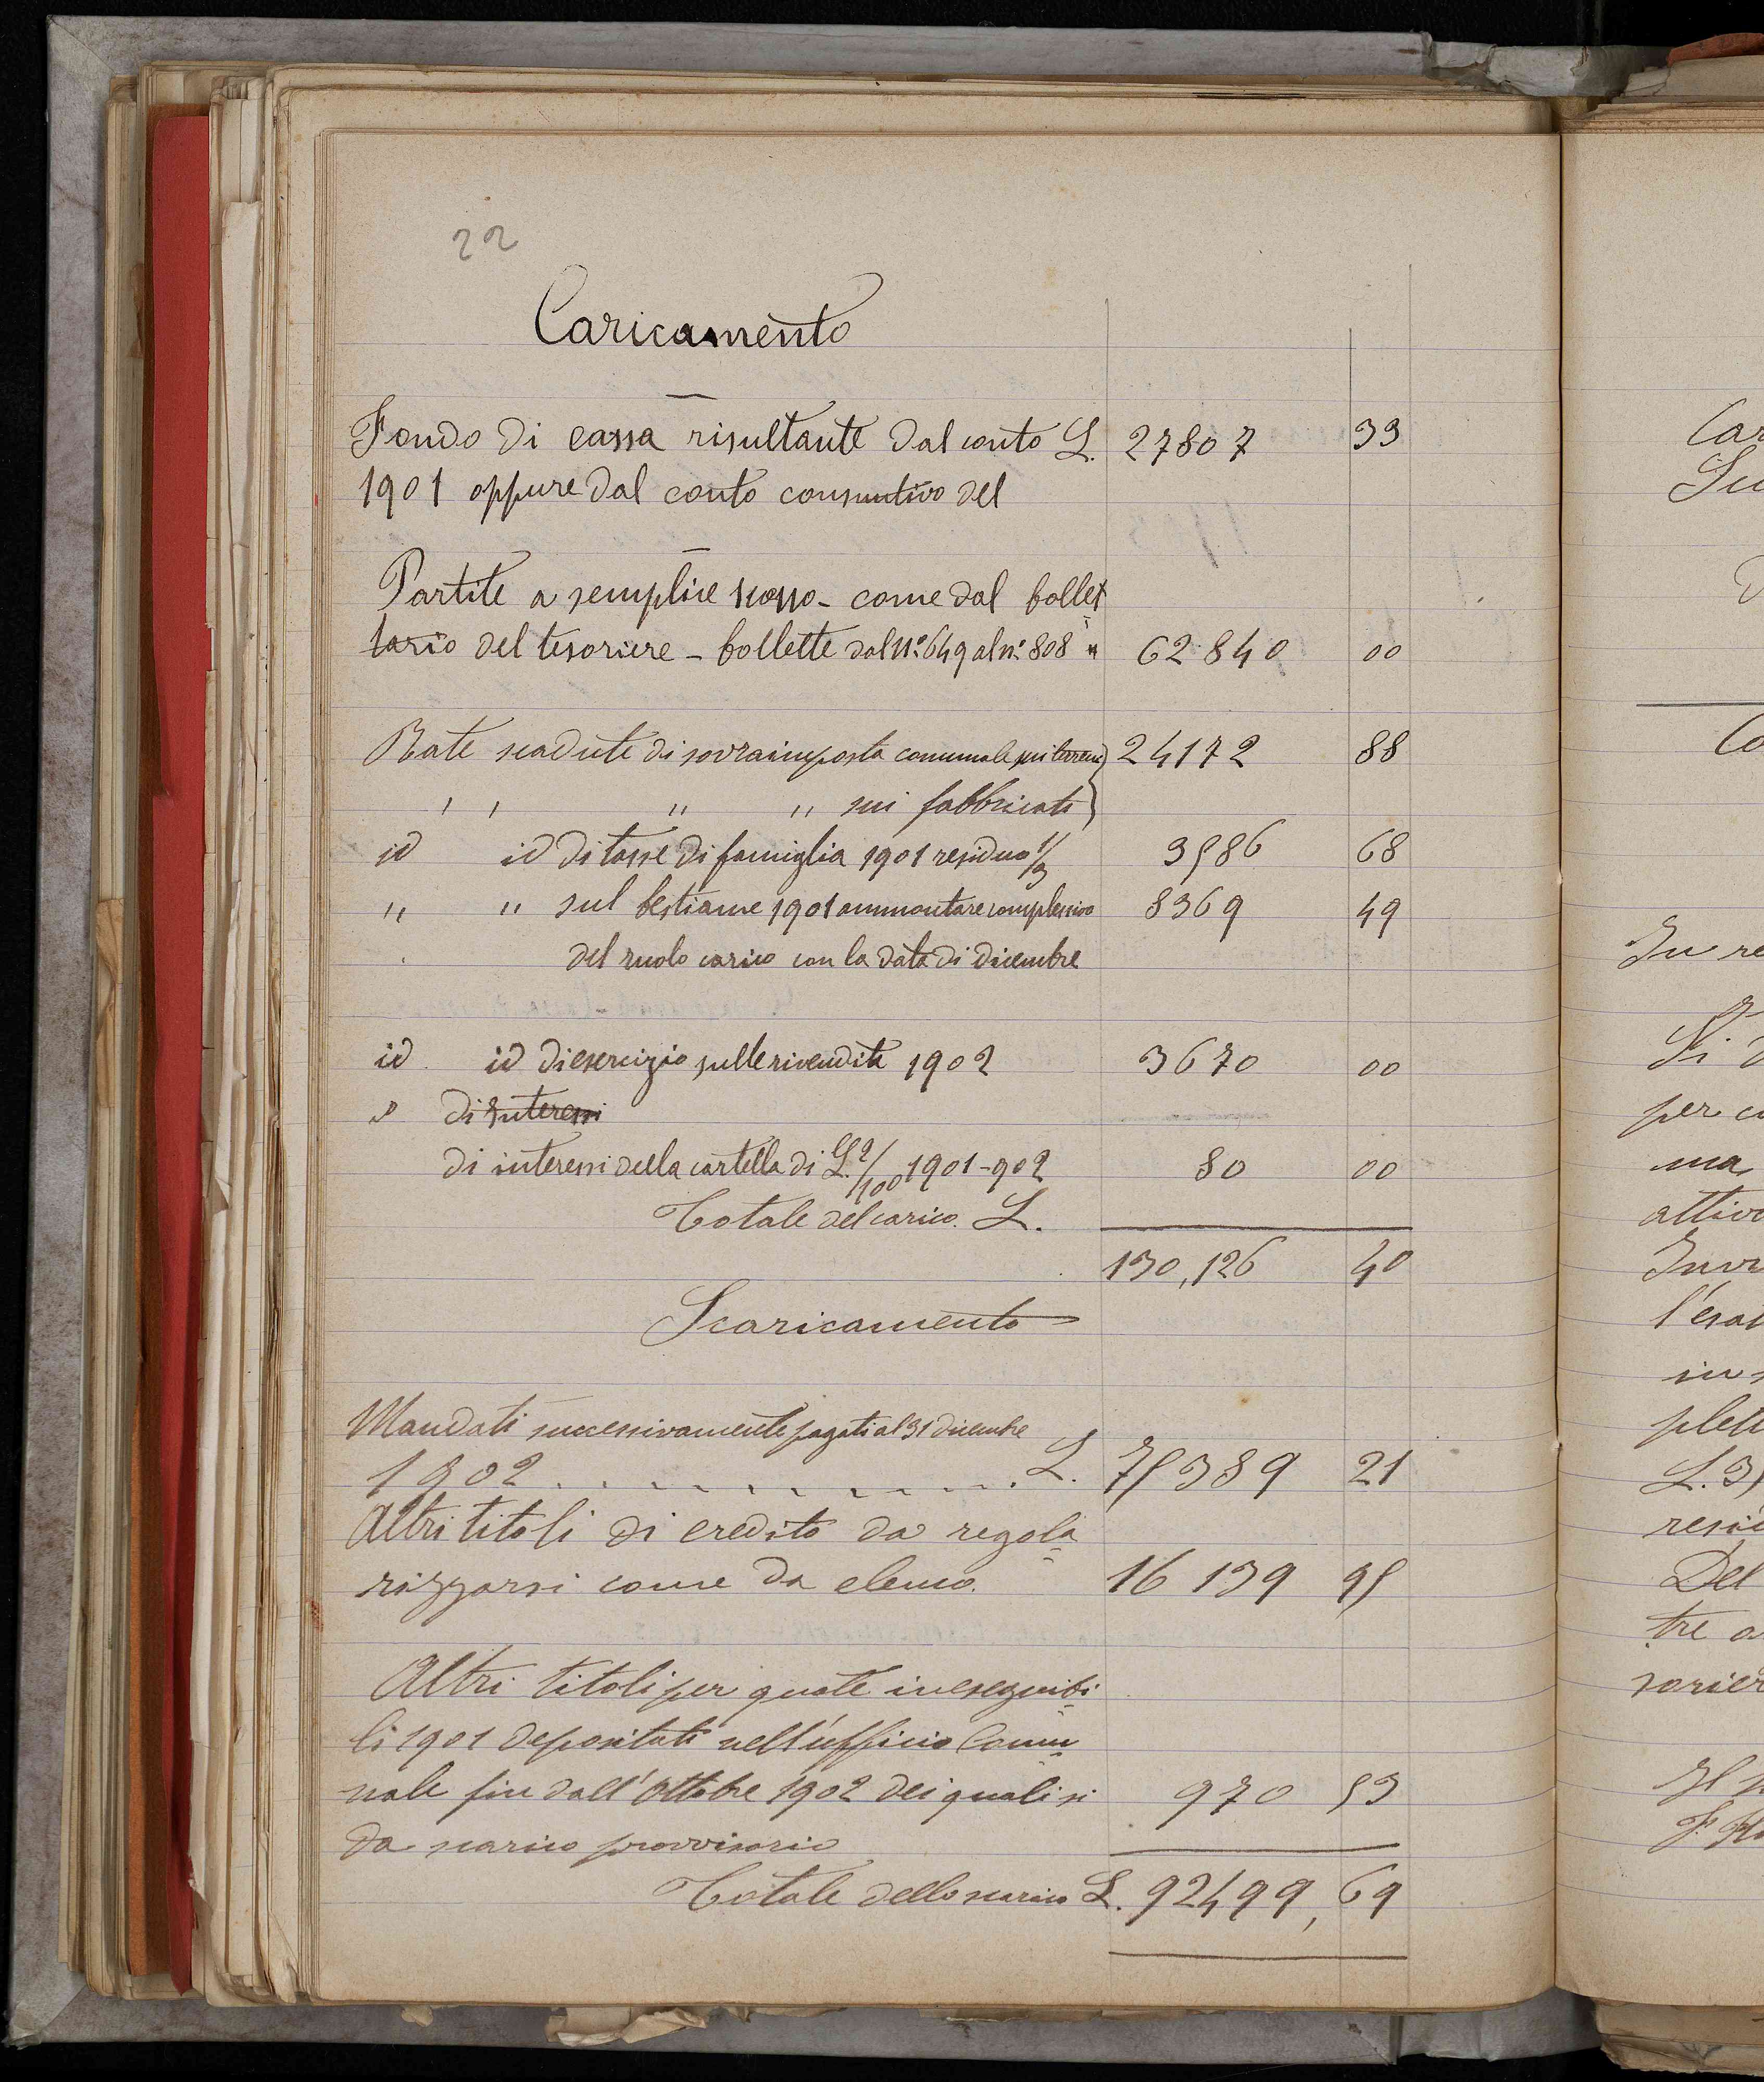 22
Caricamento
Fondo di cassa risultante dal conto L. 27807 33
1901 oppure dal conto consuntivo del
Partite a semplice scosso - come dal bollet
tario del tesoriere - bollette dal n.º 649 al n.º 808 " 62840 00
Rate scadute di sovraimposta comunale sui terreni } 24172 88
" " " " sui fabbricati }
id id di tasse di famiglia 1901 residuo 1/3 3586 68
" " sul bestiame 1901 ammontare complessivo 8369 49
del ruolo carico con la data di dicembre
id. id di esercizio sulle rivendite 1902 3670 00
" di Interessi
di interessi della cartella di L. 2/100 1901-902 80 00
Totale del carico. L.
130,126 40
Scaricamento
Mandati successivamente pagati al 31 dicembre
1902 . . . . . . . . . . . L. 75389 21
Altri titoli di credito da regola
rizzarsi come da elenco. 16139 95
Altri titoli per quote ineseguibi
li 1901 depositati nell'ufficio Comu
nale fin dall'Ottobre 1902 dei quali si 970 53
da scarico provvisorio
Totale dello scarico L. 92499, 69
In re
per c
ma
attiv
l'esa
in
L. 3
Del
tre a
sorier